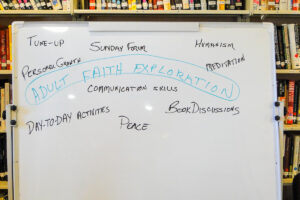 TUNE-UP
SUNDAY FORUM
HUMANISM
PERSONAL GROWTH
MEDITATION
ADULT FAITH EXPLORATION
COMMUNICATION SKILLS
DAY-TO-DAY ACTIVITIES
PEACE
BOOK DISCUSSIONS